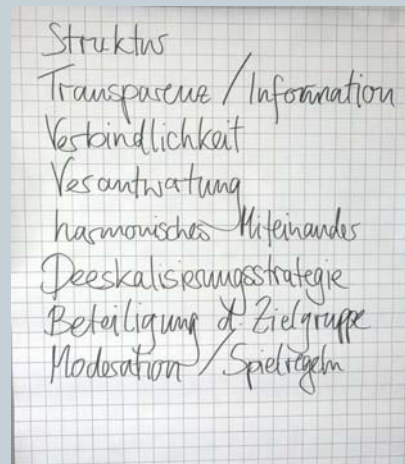 Struktur
Transparenz / Information
Verbindlichkeit
Verantwortung
harmonisches Miteinander
Deeskalisierungsstrategie
Beteiligung d. Zielgruppe
Moderation / Spielregeln